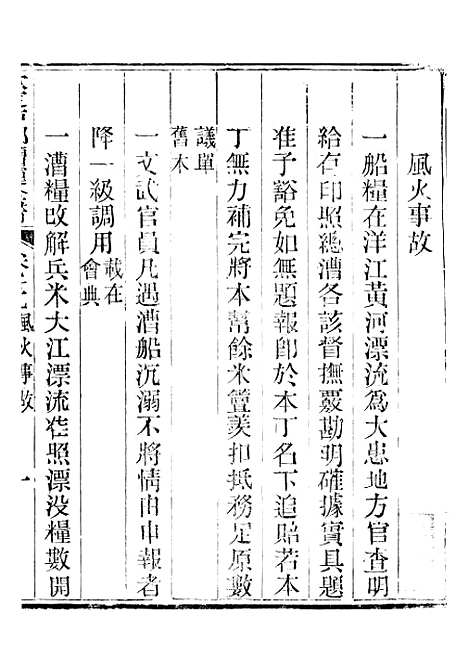 風火事故
一船糧在洋江黃河漂流為大患地方官查明
給有印照總漕各該督撫覈勘明確據實具題
准予豁免如無題報卽於本丁名下追賠若本
丁無力補完將本幫餘米簟羨扣抵務足原數
議單
舊本
一文武官員凡遇漕船沉溺不將情由申報者
降一級調用載在
會典
一漕糧改解兵米大江漂流准照漂没糧數開
風火事故 一